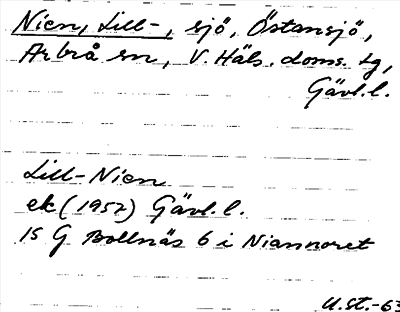 Nien, Lill-, sjö, Östansjö,
Arbrå sn, V. Häls. doms. tg,
Gävl. l.
Lill-Nien
ek (1957) Gävl. l.
15 G Bollnäs 6 i Niannoret
U.st.-63